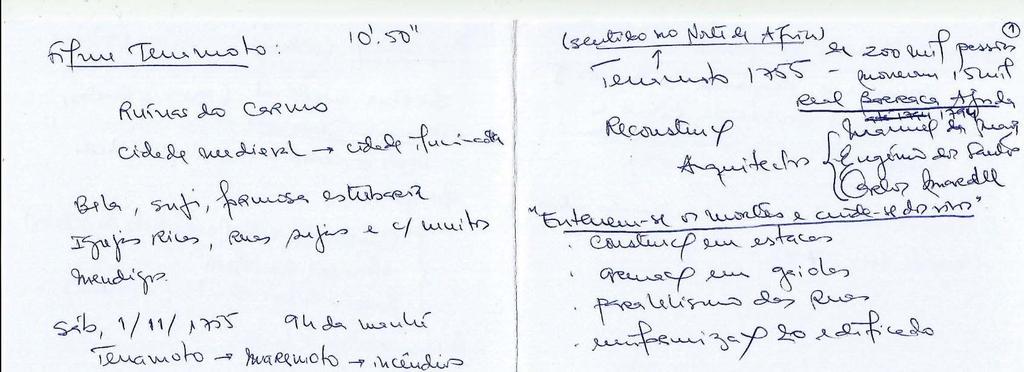 Filme Terramoto: 10'.50"
Ruínas do Carmo
cidade medieval → cidade iluminada
Bela, suja, famosa estrebaria
Igrejas Ricas, ruas sujas e c/ muitos
mendigos
Sáb, 1/11/1755 9h da manhã
Terramoto → maremoto → incêndios
①
(sentido no Norte de África)
↑
Terramoto 1755 - de 200 mil pessoas
morreram 15 mil
Real Barraca Ajuda
1794
Reconstruç
Arquitectos { Manuel da Maia
Eugénio dos Santos
Carlos Mardel
"Enterrem-se os mortos e cuide-se dos vivos"
. construç em estacas
. armaç em gaiolas
. paralelismo das ruas
. uniformizaç do edificado